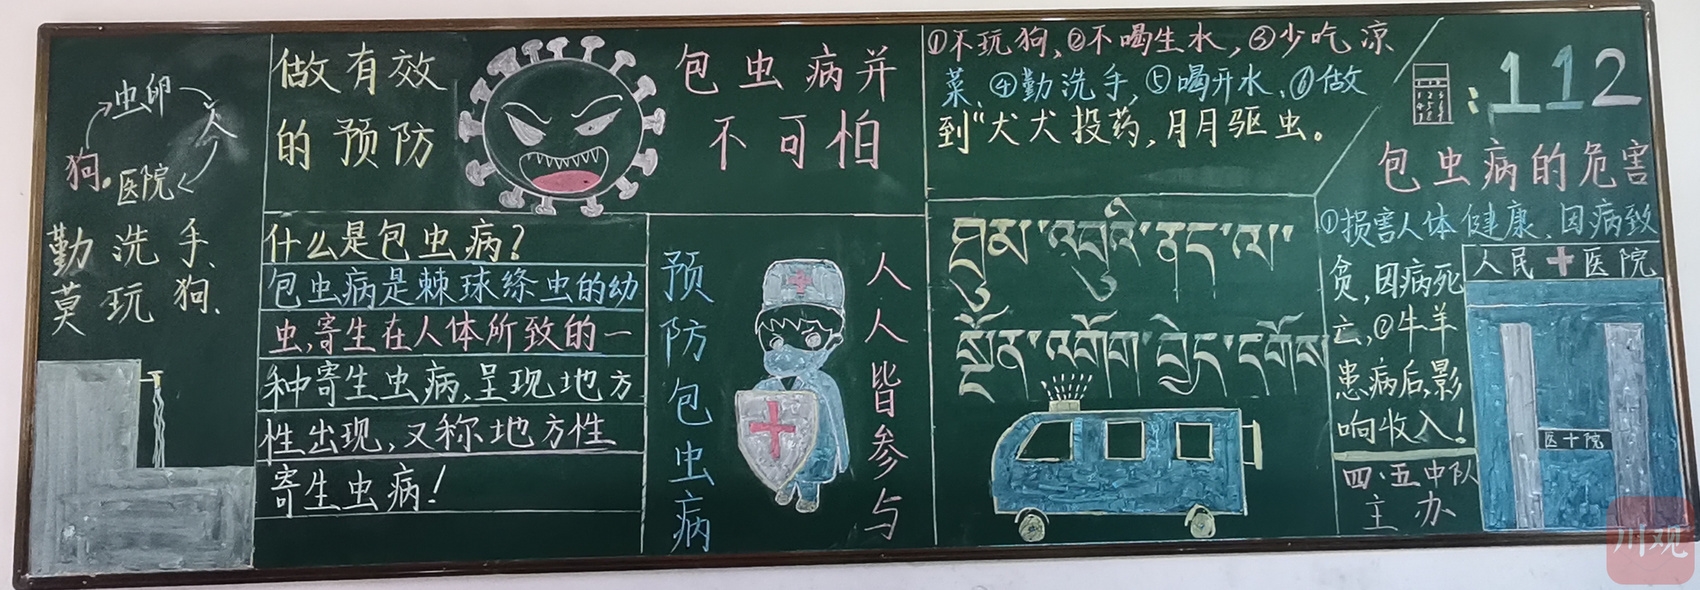 虫卵
人
狗。
医院
勤洗手、
莫玩狗、
做有效
的预防
包虫病并
不可怕
什么是包虫病?
包虫病是棘球绦虫的幼
虫,寄生在人体所致的一
种寄生虫病,呈现地方
性出现,又称地方性
寄生虫病!
预防包虫病
人人皆参与
①不玩狗,②不喝生水,③少吃凉
菜、④勤洗手,⑤喝开水、⑥做
到“犬犬投药,月月驱虫。
ཐུམ་འབུའི་ནད་ལ་
སྔོན་འགོག་བྱེད་དགོས
:112
包虫病的危害
①损害人体健康、因病致
贫,因病死
亡,②牛羊
患病后,影
响收入!
人民十医院
医十院
四、五中队
主办
川观